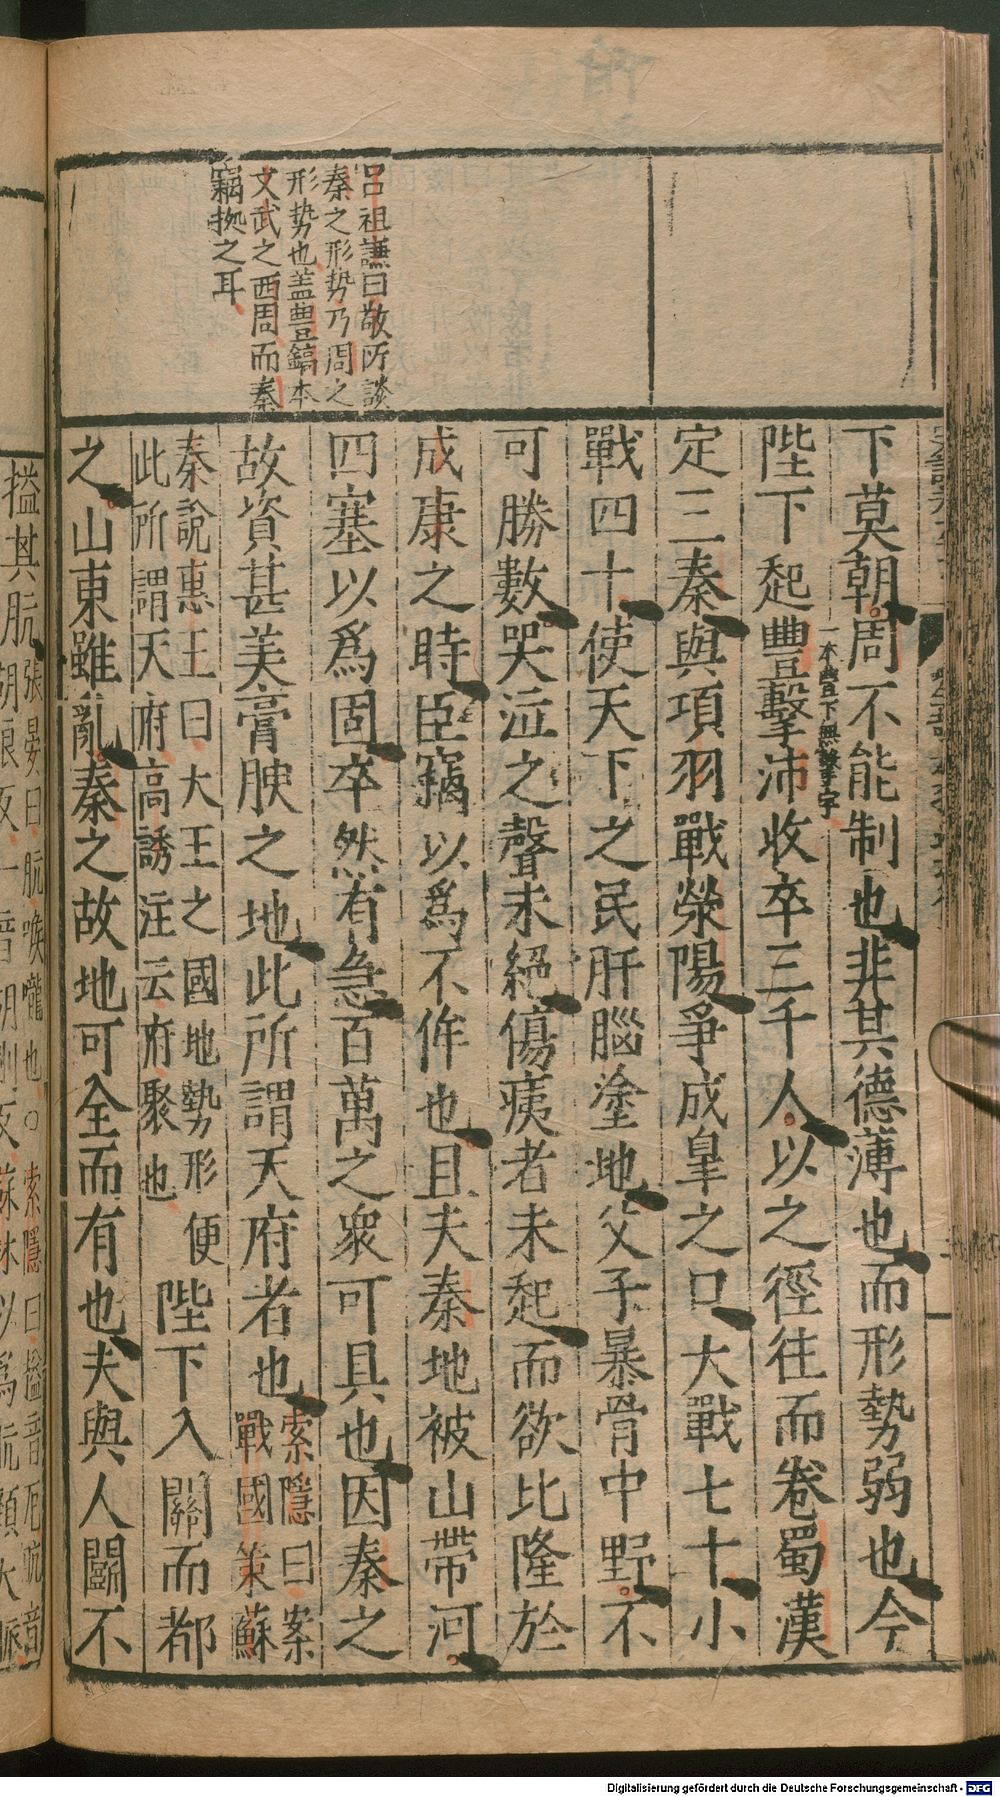 呂祖謙曰敬所談
秦之形勢乃周之
形势也盖豊鎬本
文武之西周而秦
竊拠之耳
下莫朝周不能制也非其德薄也而形勢弱也今
一本豊下無擊字
陛下起豐擊沛收卒三千人以之徑往而卷蜀漢
定三秦與項羽戰滎陽爭成皐之口大戰七十小
戰四十使天下之民肝腦塗地父子暴骨中野不
可勝數哭泣之聲未絕傷痍者未起而欲比隆於
成康之時臣竊以爲不侔也且夫秦地被山帶河
四塞以爲固卒然有急百萬之衆可具也因秦之
故資甚美膏腴之地此所謂天府者也索隱曰案
戰國策蘇
秦說惠王曰大王之國地勢形便
此所謂天府高誘注云府聚也
陛下入關而都
之山東雖亂秦之故地可全而有也夫與人鬪不
搤其肮張晏曰肮喉嚨也○索隱曰搤音厄肮音
胡浪反一音胡剛反蘇林以爲肮頸大脈
Digitalisierung gefördert durch die Deutsche Forschungsgemeinschaft - DFG